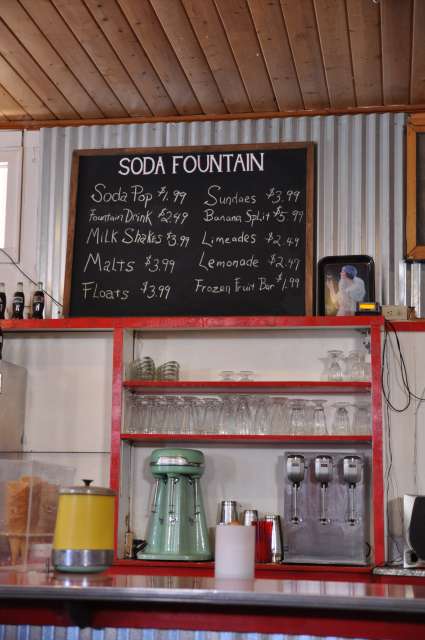 SODA FOUNTAIN
Soda Pop $1.99
Fountain Drink $2.49
Milk Shakes $3.99
Malts $3.99
Floats $3.99
Sundaes $3.99
Banana Split $5.99
Limeades $2.49
Lemonade $2.49
Frozen Fruit Bar $1.99